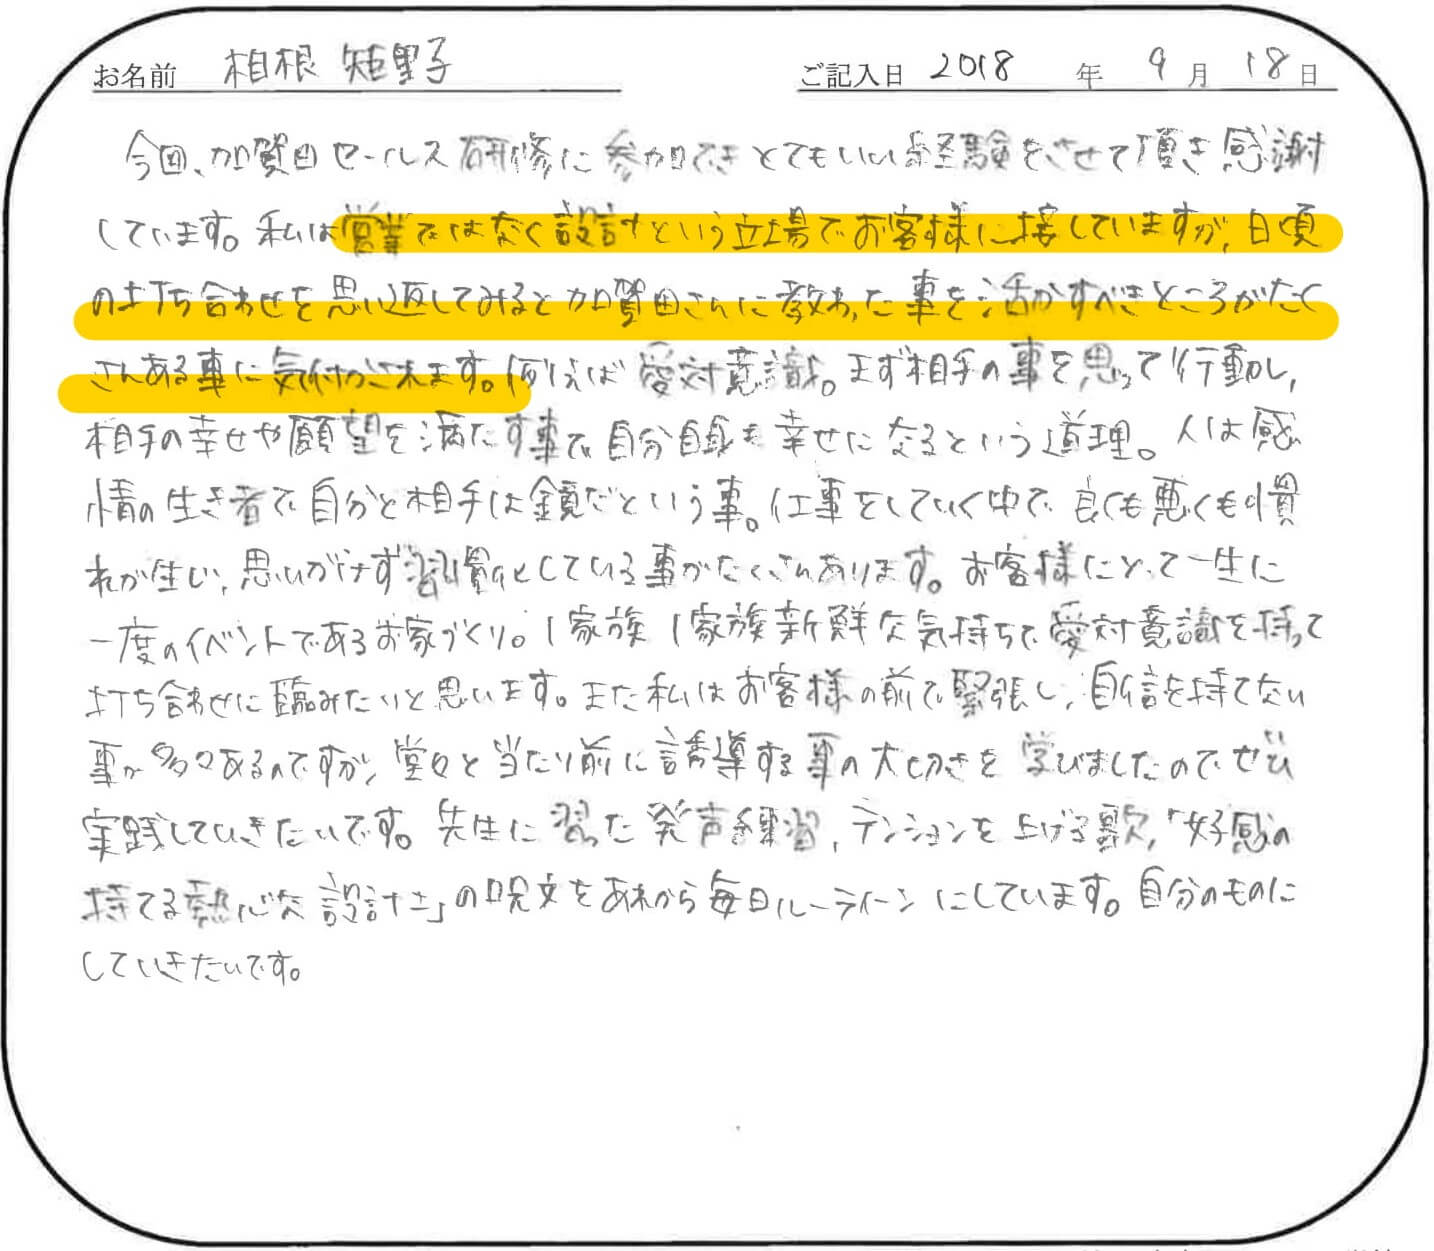 お名前 相根 矩里子 ご記入日 2018 年 9 月 18 日
今回、加賀田セールス研修に参加でき とてもいい経験をさせて頂き感謝
しています。私は営業ではなく設計という立場でお客様に接していますが、日頃
の打ち合わせを思い返してみると加賀田さんに教わった事を活かすべきところがたく
さんある事に気付かされます。例えば愛対意識。まず相手の事を思って行動し、
相手の幸せや願望を満たす事で自分自身も幸せになるという道理。人は感
情の生き者で自分と相手は鏡だという事。仕事をしていく中で良くも悪くも慣
れが生じ、思いがけず習慣化している事がたくさんあります。お客様にとって一生に
一度のイベントであるお家づくり。1家族1家族新鮮な気持ちで愛対意識を持って
打ち合わせに臨みたいと思います。また私はお客様の前で緊張し、自信を持てない
事が多々あるのですが、堂々と当たり前に誘導する事の大切さを学びましたのでぜひ
実践していきたいです。先生に習った発声練習、テンションを上げる歌、「好感の
持てる熱心な設計士」の呪文をあれから毎日ルーティーンにしています。自分のものに
していきたいです。